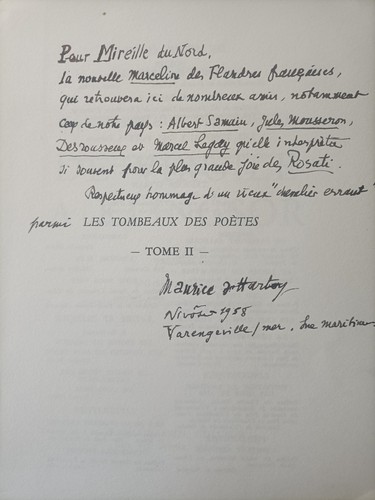 Pour Mireille du Nord,
la nouvelle Marceline des Flandres françaises,
qui retrouvera ici de nombreux amis, notamment
ceux de notre pays : Albert Samain, Jules Mousseron,
Desrousseaux et Marcel Legay qu'elle interpréta
si souvent pour la plus grande joie des Rosati.
Respectueux hommage d'un vieux "chevalier errant"
parmi LES TOMBEAUX DES POÈTES
— TOME II —
Maurice d'Hartoy
Nivôse 1958
Varengeville/mer, Sne maritime